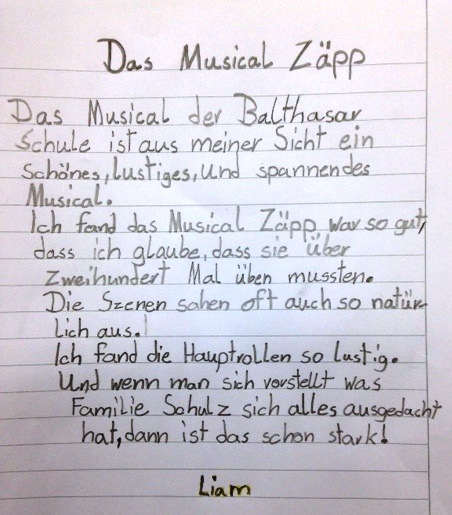 Das Musical Zäpp
Das Musical der Balthasar
Schule ist aus meiner Sicht ein
schönes, lustiges, und spannendes
Musical.
Ich fand das Musical Zäpp war so gut,
dass ich glaube, dass sie über
zweihundert Mal üben mussten.
Die Szenen sahen oft auch so natür-
lich aus.
Ich fand die Hauptrollen so lustig.
Und wenn man sich vorstellt was
Familie Schulz sich alles ausgedacht
hat, dann ist das schon stark!
Liam